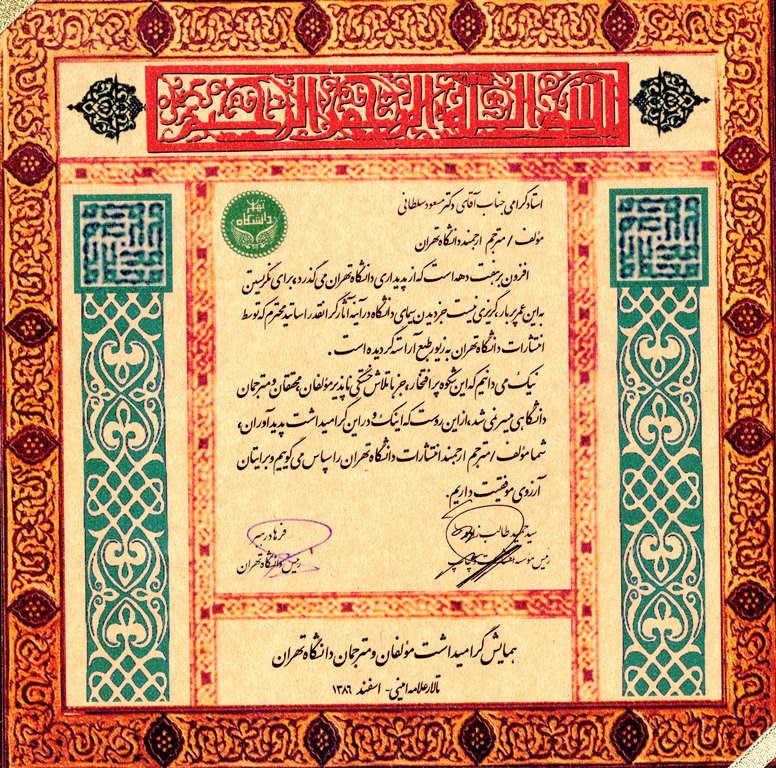 بسم الله الرحمن الرحیم
دانشگاه تهران
استاد گرامی جناب آقای دکتر مسعود سلطانی
مؤلف / مترجم ارجمند دانشگاه تهران
افزون بر هفت دهه است که از پدیداری دانشگاه تهران می گذرد، برای نگریستن
به این عمر پربار گریزی نیست جز دیدن سیمای دانشگاه در آینه آثار گرانقدر اساتید محترم که توسط
انتشارات دانشگاه تهران به زیور طبع آراسته گردیده است .
نیک می دانیم که این شکوه پر افتخار، جز با تلاش خستگی ناپذیر مؤلفان، محققان و مترجمان
دانشگاهی میسر نمی شد، از این روست که اینک و در این گرامیداشت پدیدآوران،
شما مؤلف / مترجم ارجمند انتشارات دانشگاه تهران را سپاس می گوییم و برایتان
آرزوی موفقیت داریم .
سید حمید طالب زاده
رئیس مؤسسه انتشارات و چاپ
فرهاد رهبر
رئیس دانشگاه تهران
همایش گرامیداشت مؤلفان و مترجمان دانشگاه تهران
تالار علامه امینی - اسفند ۱۳۸۶